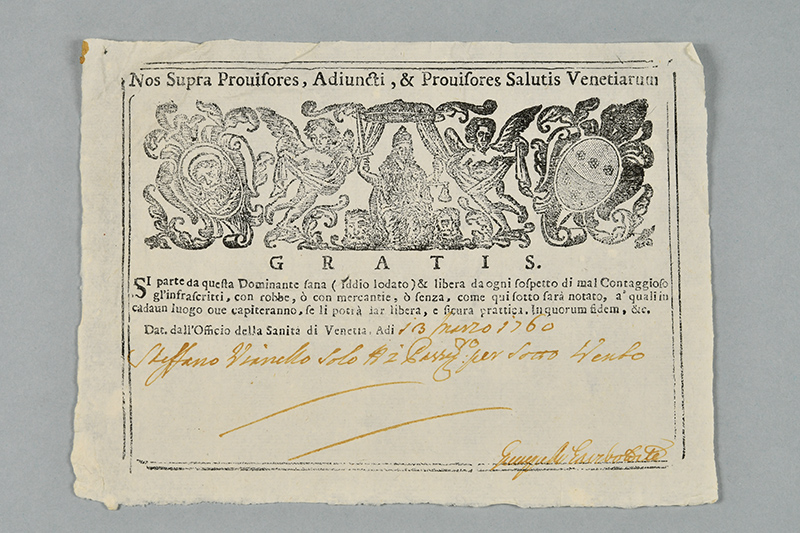 Nos Supra Prouiſores, Adiuncti, & Prouiſores Salutis Venetiarum
GRATIS.
SI parte da queſta Dominante ſana ( Iddio lodato ) & libera da ogni ſoſpetto di mal Contaggioſo
gl'infraſcritti, con robbe, ò con mercantie, ò ſenza, come qui ſotto ſarà notato, a' quali in
cadaun luogo oue capiteranno, ſe li potrà dar libera, e ſicura prattica. In quorum fidem, &c.
Dat. dall'Officio della Sanita di Venetia. Adi 13 Marzo 1760
Steffano Vianello solo per Sotto Vento